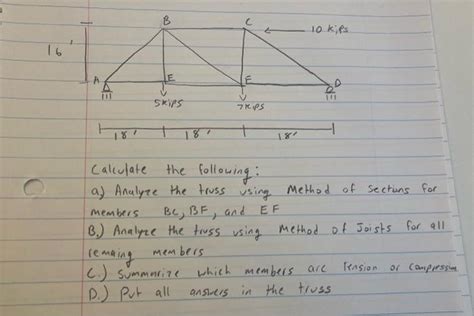 B C 10 kips
16'
A E F D
5kips 7kips
18' 18' 18'
Calculate the following:
a) Analyze the truss using Method of Sections for
members BC, BF, and EF
B.) Analyze the truss using Method of Joists for all
remaing members
C.) Summarize which members are Tension or compression
D.) Put all answers in the truss